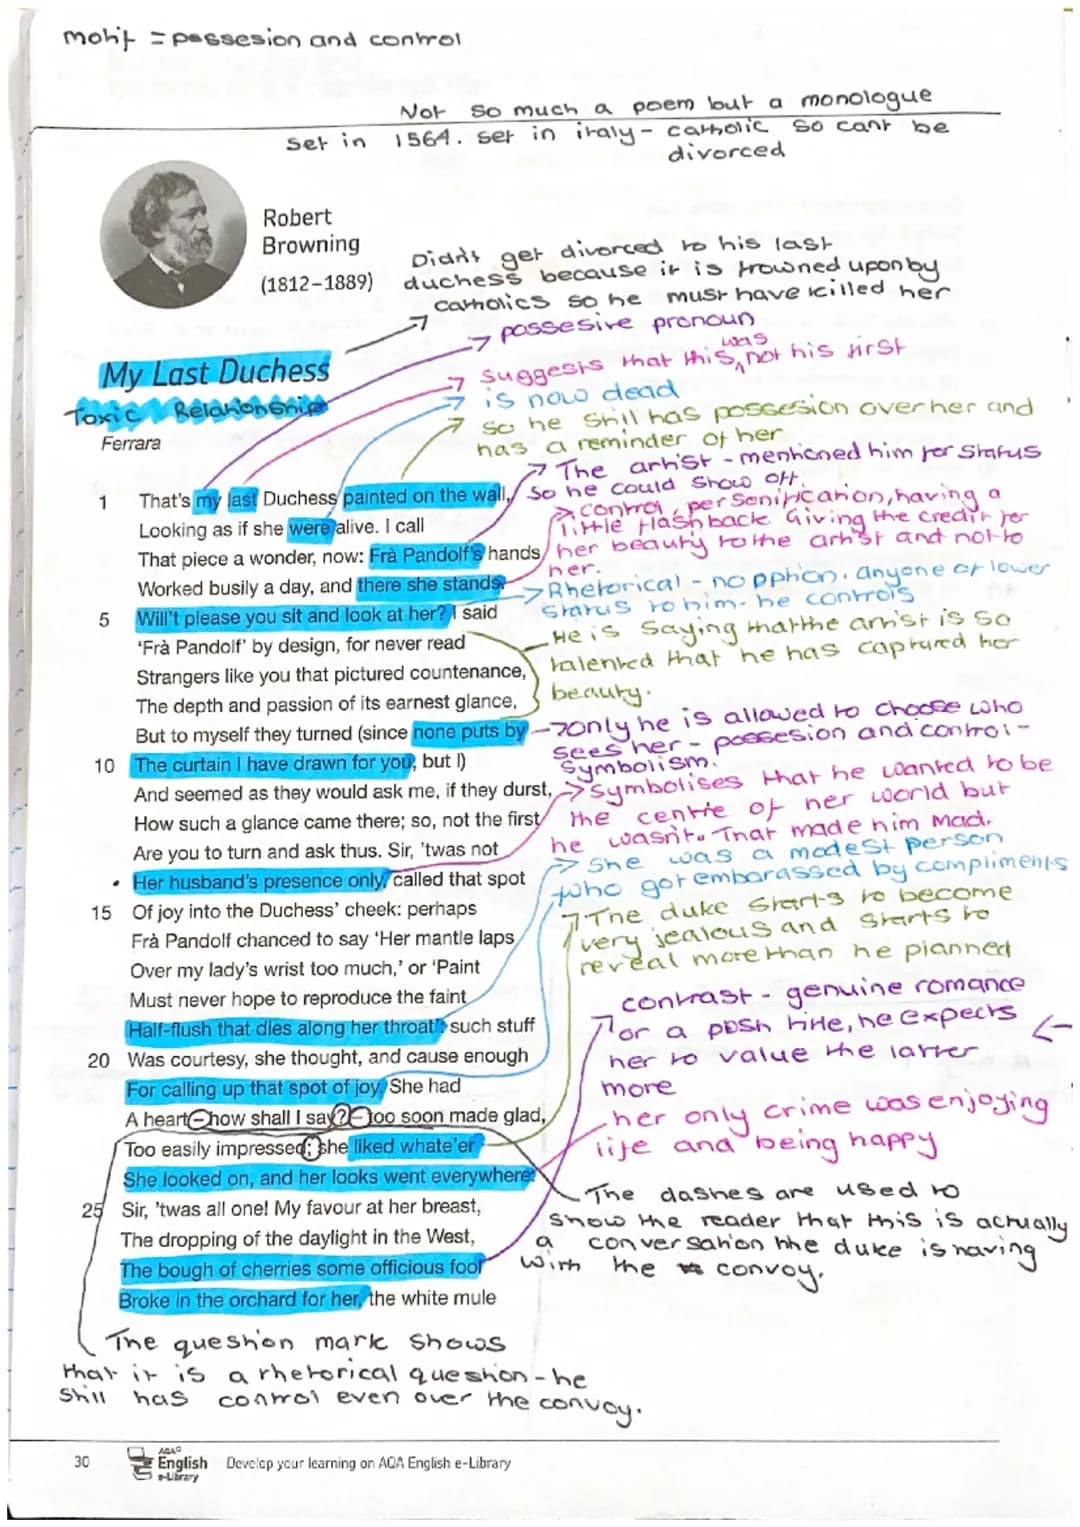 motif = possesion and control
Not so much a poem but a monologue
Set in 1564. set in italy - catholic so cant be
divorced
Robert
Browning
(1812–1889)
Didn't get divorced to his last
duchess because it is frowned upon by
catholics so he must have killed her
possesive pronoun
was
suggests that this, not his first
is now dead
so he still has possesion over her and
has a reminder of her
My Last Duchess
Toxic Relationship
Ferrara
The artist - mentioned him for status
so he could show off.
control, personification, having a
little flashback. Giving the credit for
her beauty to the artist and not to
her.
Rhetorical - no option. anyone of lower
status to him - he controls
He is saying that the artist is so
talented that he has captured her
beauty.
only he is allowed to choose who
sees her - possesion and control -
symbolism.
symbolises that he wanted to be
the centre of her world but
he wasn't. That made him mad.
She was a modest person
who got embarassed by compliments
The duke starts to become
very jealous and starts to
reveal more than he planned
contrast - genuine romance
or a posh title, he expects
her to value the latter
more
her only crime was enjoying
life and being happy
The dashes are used to
show the reader that this is actually
a conversation the duke is having
with the convoy.
1 That's my last Duchess painted on the wall,
Looking as if she were alive. I call
That piece a wonder, now: Frà Pandolf's hands
Worked busily a day, and there she stands.
5 Will't please you sit and look at her? I said
'Frà Pandolf' by design, for never read
Strangers like you that pictured countenance,
The depth and passion of its earnest glance,
But to myself they turned (since none puts by
10 The curtain I have drawn for you, but I)
And seemed as they would ask me, if they durst,
How such a glance came there; so, not the first
Are you to turn and ask thus. Sir, 'twas not
Her husband's presence only, called that spot
15 Of joy into the Duchess' cheek: perhaps
Frà Pandolf chanced to say 'Her mantle laps
Over my lady's wrist too much,' or 'Paint
Must never hope to reproduce the faint
Half-flush that dies along her throat': such stuff
20 Was courtesy, she thought, and cause enough
For calling up that spot of joy. She had
A heart – how shall I say? – too soon made glad,
Too easily impressed; she liked whate'er
She looked on, and her looks went everywhere.
25 Sir, 'twas all one! My favour at her breast,
The dropping of the daylight in the West,
The bough of cherries some officious fool
Broke in the orchard for her, the white mule
The question mark shows
that it is a rhetorical question - he
still has control even over the convoy.
30
AQA
English
e-Library
Develop your learning on AQA English e-Library